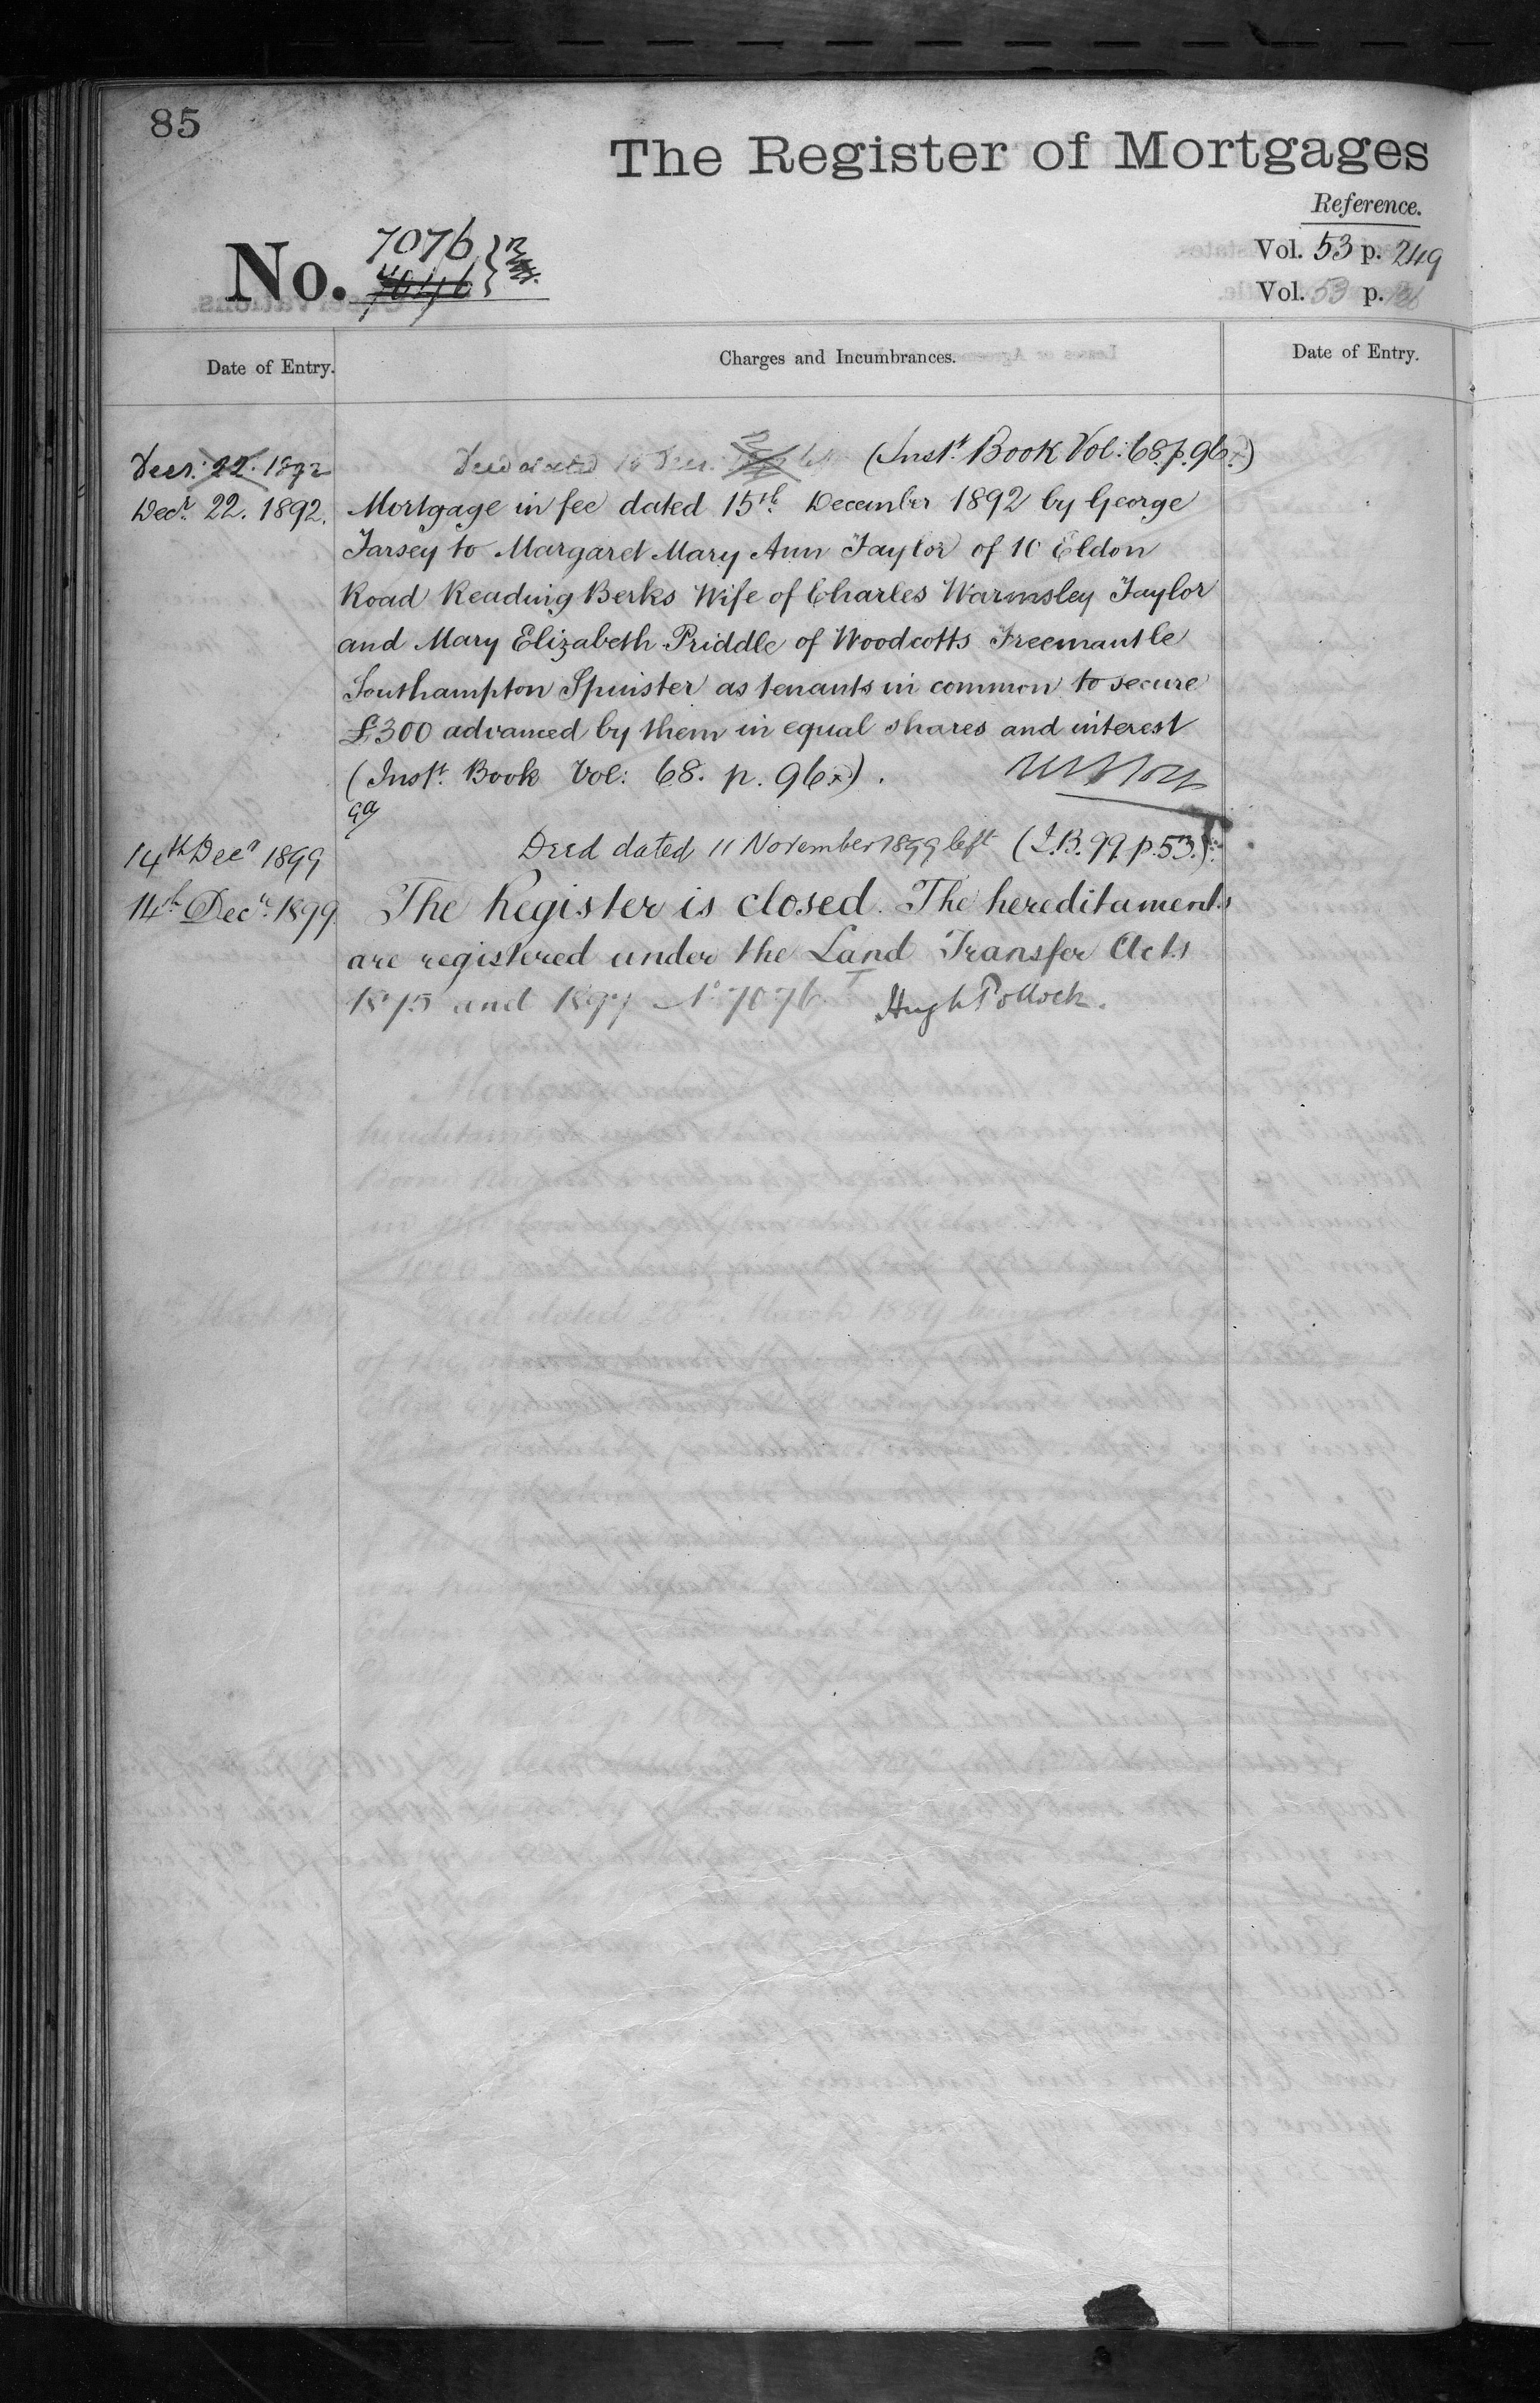 85
The Register of Mortgages
Reference.
No. 7076
7046
Vol. 53 p. 249
Vol. 53 p.
Date of Entry.
Charges and Incumbrances.
Date of Entry.
Decr. 22. 1892
Deed dated 15 Decr. (Inst. Book Vol: 68. p. 96.)
Decr. 22. 1892.
Mortgage in fee dated 15th December 1892 by George
Tarsey to Margaret Mary Ann Taylor of 10 Eldon
Road Reading Berks Wife of Charles Warmsley Taylor
and Mary Elizabeth Priddle of Woodcotts Freemantle
Southampton Spinster as tenants in common to secure
£300 advanced by them in equal shares and interest
(Inst. Book Vol: 68. p. 96.).
14th Decr 1899
Deed dated 11 November 1899 left (I.B. 99. p. 53.)
14th Decr. 1899.
The Register is closed. The hereditaments
are registered under the Land Transfer Acts
1875 and 1897 No 7076 Hugh Pollock.